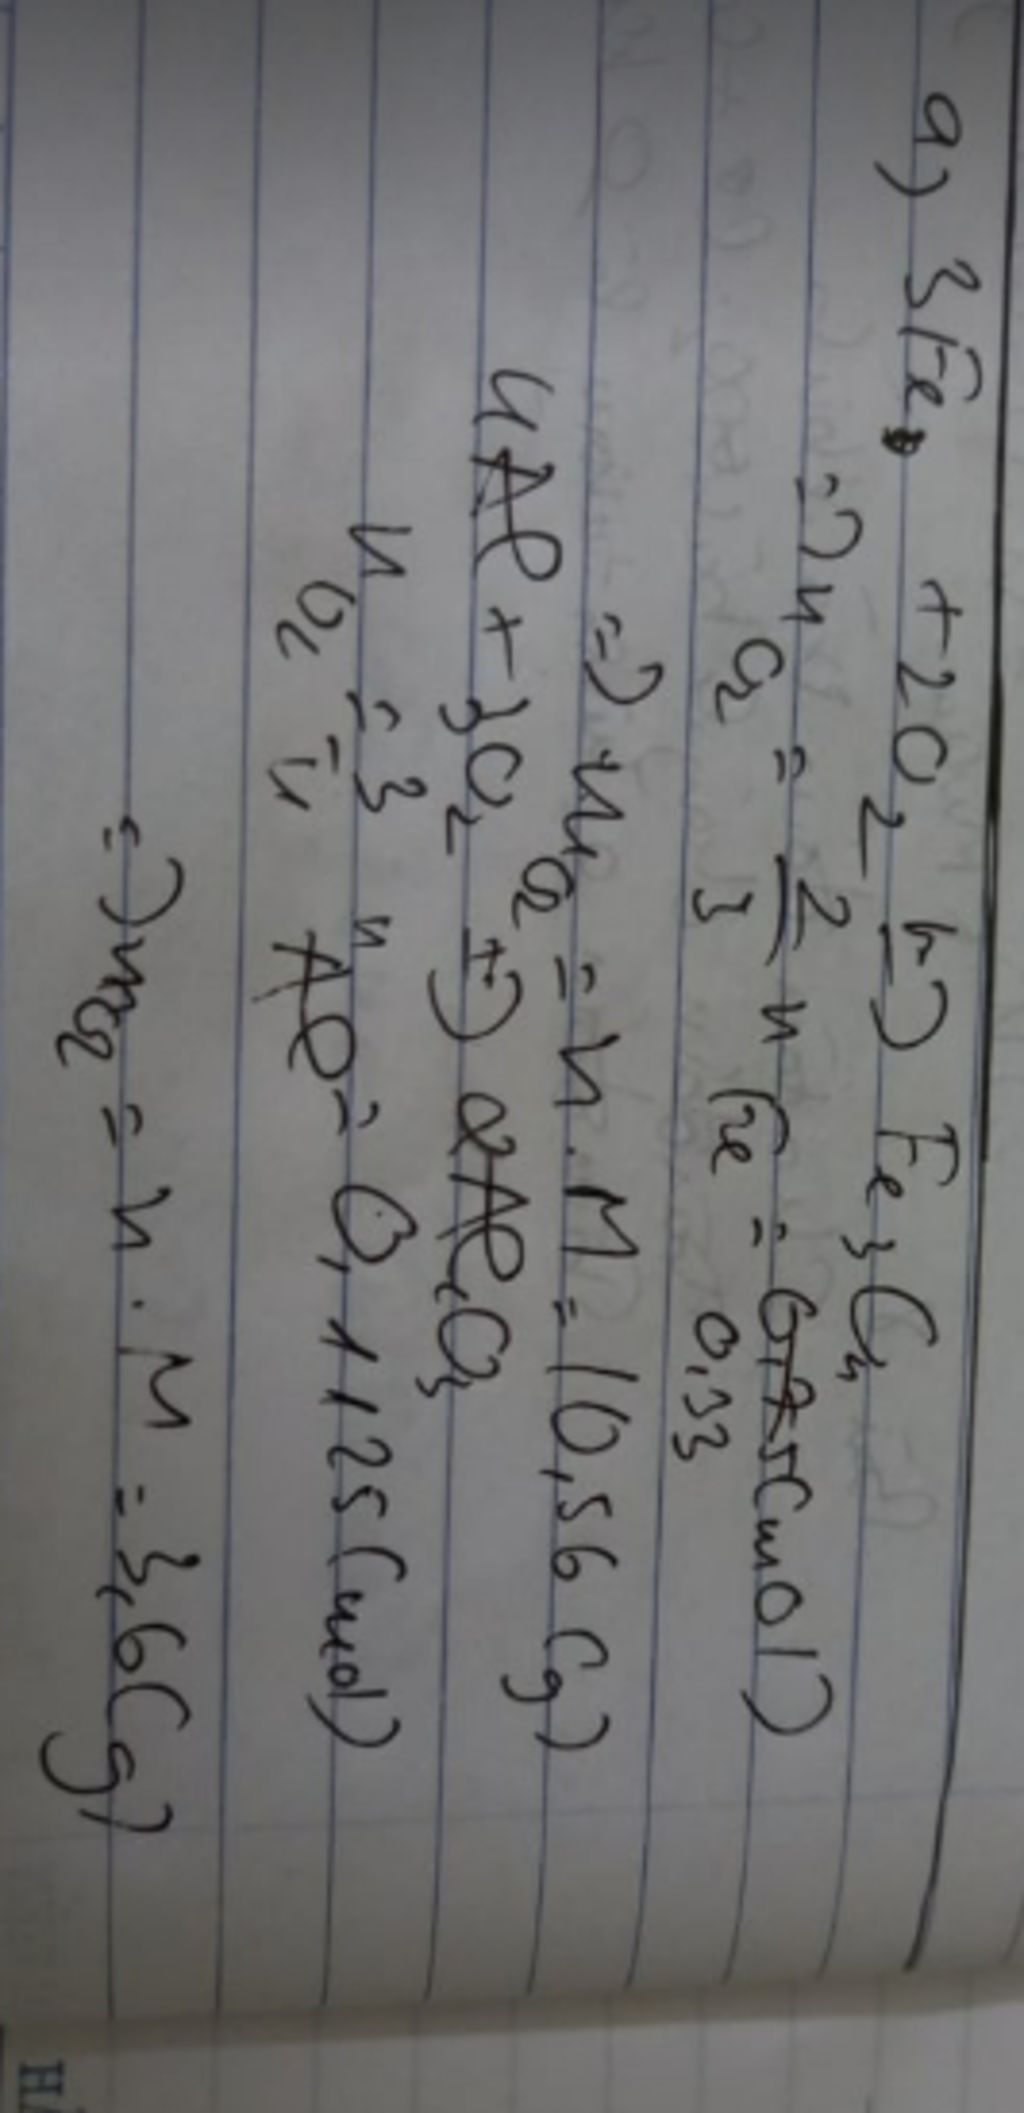 a) 3Fe + 2O2 → Fe3O4
=> nO2 = 2/3 nFe = 0,33 (mol)
=> mO2 = n.M = 10,56 (g)
4Al + 3O2 → 2Al2O3
nO2 = 3/4 nAl = 0,1125 (mol)
=> mO2 = n.M = 3,6 (g)